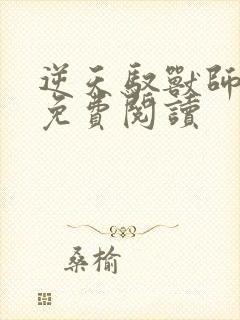 逆天馭獸師
免費閱讀
桑榆